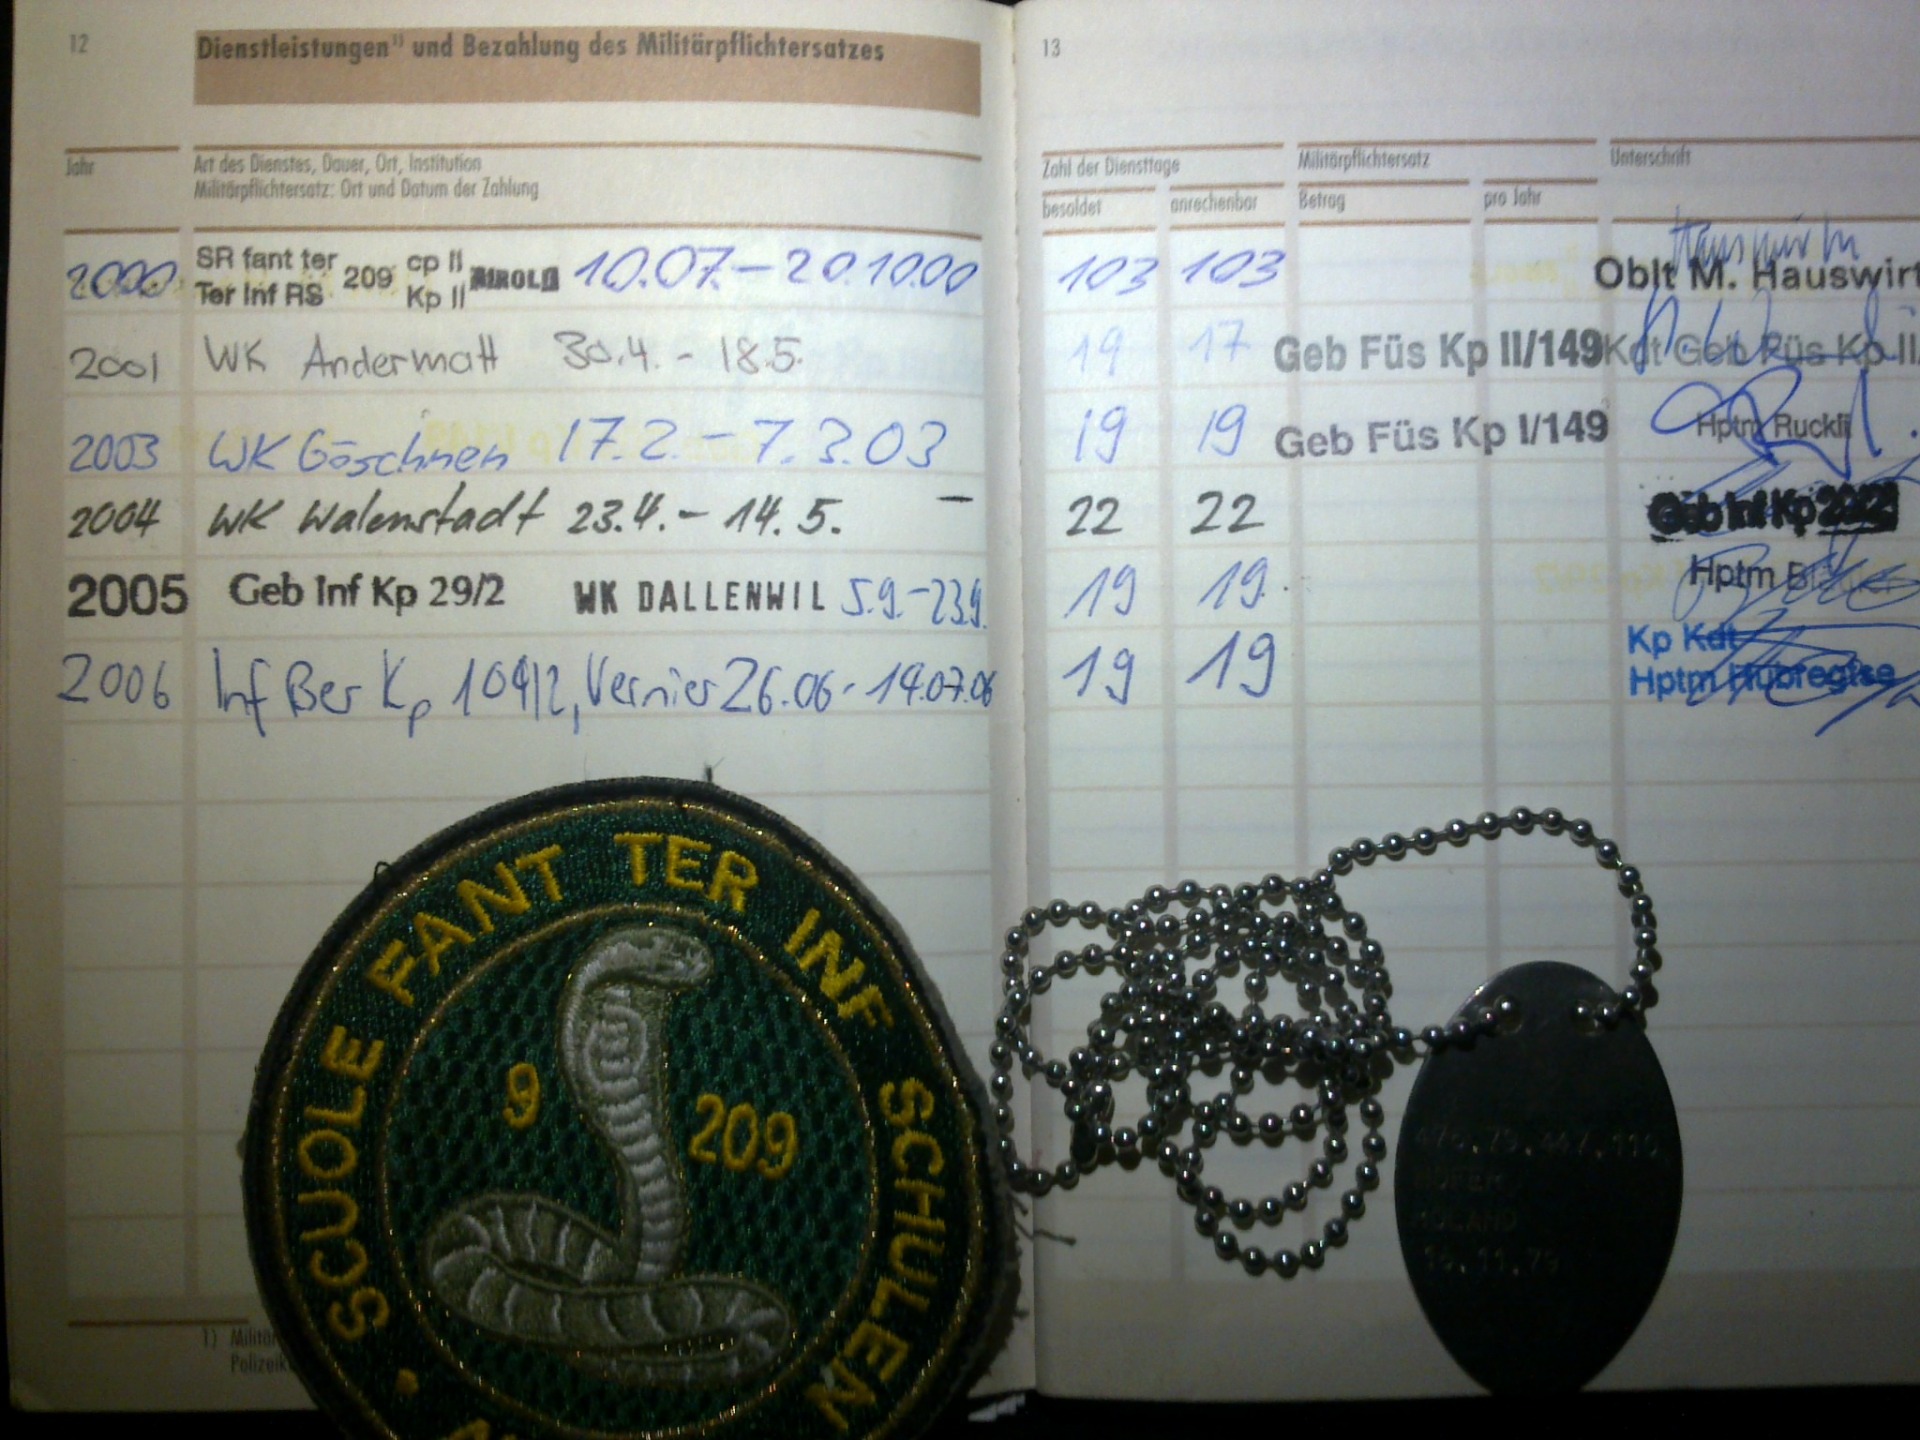 12
Dienstleistungen¹⁾ und Bezahlung des Militärpflichtersatzes
13
Jahr
Art des Dienstes, Dauer, Ort, Institution
Militärpflichtersatz: Ort und Datum der Zahlung
Zahl der Diensttage
Militärpflichtersatz
Unterschrift
besoldet
anrechenbar
Betrag
pro Jahr
2000 SR fant ter 209 cp II AIROLO 10.07. - 20.10.00 103 103 Oblt M. Hauswirt
Ter Inf RS Kp II
2001 WK Andermatt 30.4. - 18.5. 19 17 Geb Füs Kp II/149 Kdt Geb Füs Kp II/
2003 WK Göschnen 17.2. - 7.3.03 19 19 Geb Füs Kp I/149 Hptm Ruckli
2004 WK Walenstadt 23.4. - 14.5. - 22 22 Geb Inf Kp
2005 Geb Inf Kp 29/2 WK DALLENWIL 5.9. - 23.9. 19 19 Hptm
2006 Inf Ber Kp 104/2, Vernier 26.06 - 14.07.06 19 19 Kp Kdt
Hptm
SCUOLE FANT TER INF SCHULEN
9 209
1) Militär
Polizei
16.11.79